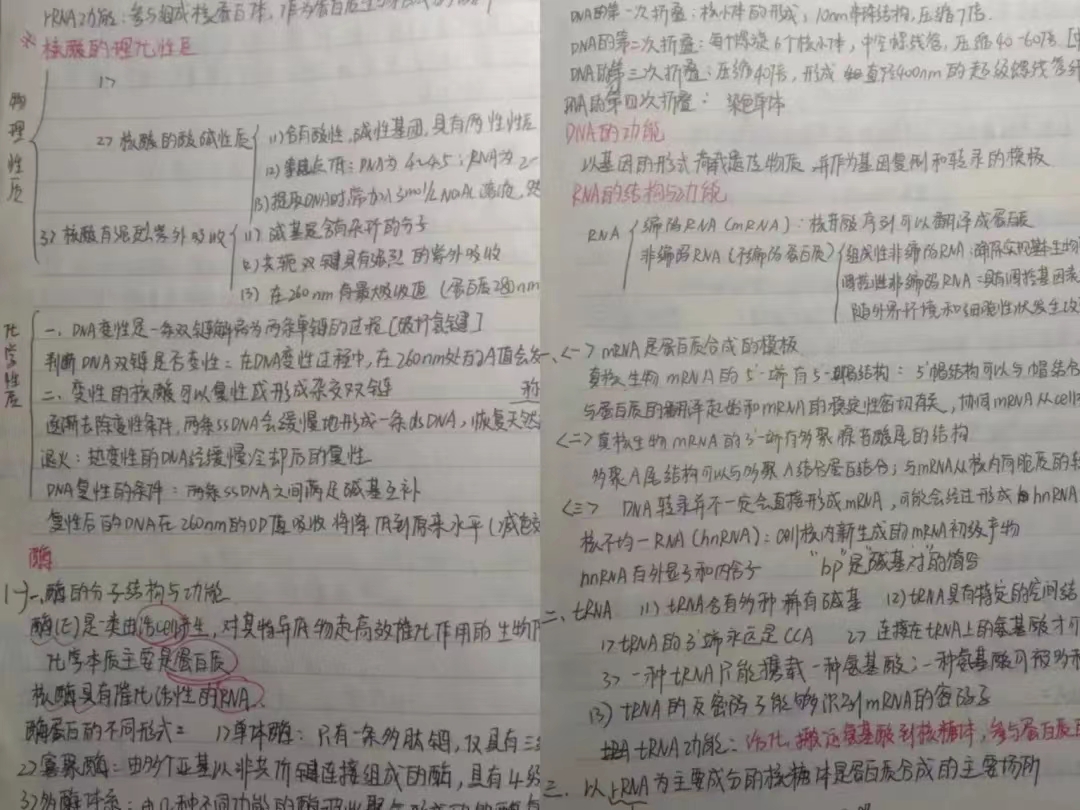 rRNA功能：参与组成核蛋白体，作为蛋白质生物合成的场所
※ 核酸的理化性质
物理性质
1>
2> 核酸的酸碱性质
(1) 含有酸性、碱性基团，具有两性性质
(2) 等电点低：DNA为4~4.5；RNA为2~
(3) 提取DNA时常加入1mol/L NaCl溶液，
3> 核酸有强烈紫外吸收
(1) 碱基是含有杂环的分子
(2) 共轭双键具有强烈的紫外吸收
(3) 在260nm有最大吸收值（蛋白质280nm
化学性质
一、DNA变性是一条双链解离为两条单链的过程［破坏氢键］
判断DNA双链是否变性：在DNA变性过程中，在260nm处的A值会发
二、变性的核酸可以复性或形成杂交双链
称
逐渐去除变性条件，两条ssDNA会缓慢地形成一条dsDNA，恢复天然
退火：热变性的DNA经缓慢冷却后的复性
DNA复性的条件：两条ssDNA之间满足碱基互补
复性后的DNA在260nm的OD值吸收将降低到原来水平（减色效
酶
(一)一、酶的分子结构与功能
酶(E)是一类由活cell产生，对其特异底物起高效催化作用的生物
化学本质主要是蛋白质
核酶具有催化活性的RNA.
酶蛋白的不同形式： 1>单体酶：只有一条多肽链，仅具有三级
2>寡聚酶：由多个亚基以非共价键连接组成的酶，具有4级
3>多酶体系：由几种不同功能的酶
DNA的第一次折叠：核小体的形成，10nm串珠结构，压缩7倍.
DNA的第二次折叠：每个螺旋6个核小体，中空螺线管，压缩40-60倍
DNA的第三次折叠：压缩40倍，形成直径400nm的超级螺线管纤
DNA的第四次折叠：染色单体
DNA的功能
以基因的形式荷载遗传物质，并作为基因复制和转录的模板
RNA的结构与功能
RNA
编码RNA(mRNA)：核苷酸序列可以翻译成蛋白质
非编码RNA（不编码蛋白质）
组成性非编码RNA：确保实现基本生物
调控性非编码RNA：具有调控基因表
随外界环境和细胞性状发生改
一、<一> mRNA是蛋白质合成的模板
真核生物mRNA的5'-端有5'-帽结构：5'帽结构可以与帽结合
与蛋白质的翻译起始和mRNA的稳定性密切有关，协同mRNA从cell
<二> 真核生物mRNA的3'-端有多聚腺苷酸尾的结构
多聚A尾结构可以与多聚A结合蛋白结合；与mRNA从核内向胞质的转
<三> DNA转录并不一定会直接形成mRNA，可能会经过形成hnRNA
核不均一RNA(hnRNA)：cell核内新生成的mRNA初级产物
hnRNA有外显子和内含子 "bp"是"碱基对"的简写
二、tRNA (1) tRNA含有多种稀有碱基 (2) tRNA具有特定的空间结
1>tRNA的3'端永远是CCA 2> 连接在tRNA上的氨基酸才
3> 一种tRNA只能携载一种氨基酸；一种氨基酸可被多种
(3) tRNA的反密码子能够识别mRNA的密码子
tRNA功能：活化、搬运氨基酸到核糖体，参与蛋白质
三、以rRNA为主要成分的核糖体是蛋白质合成的主要场所